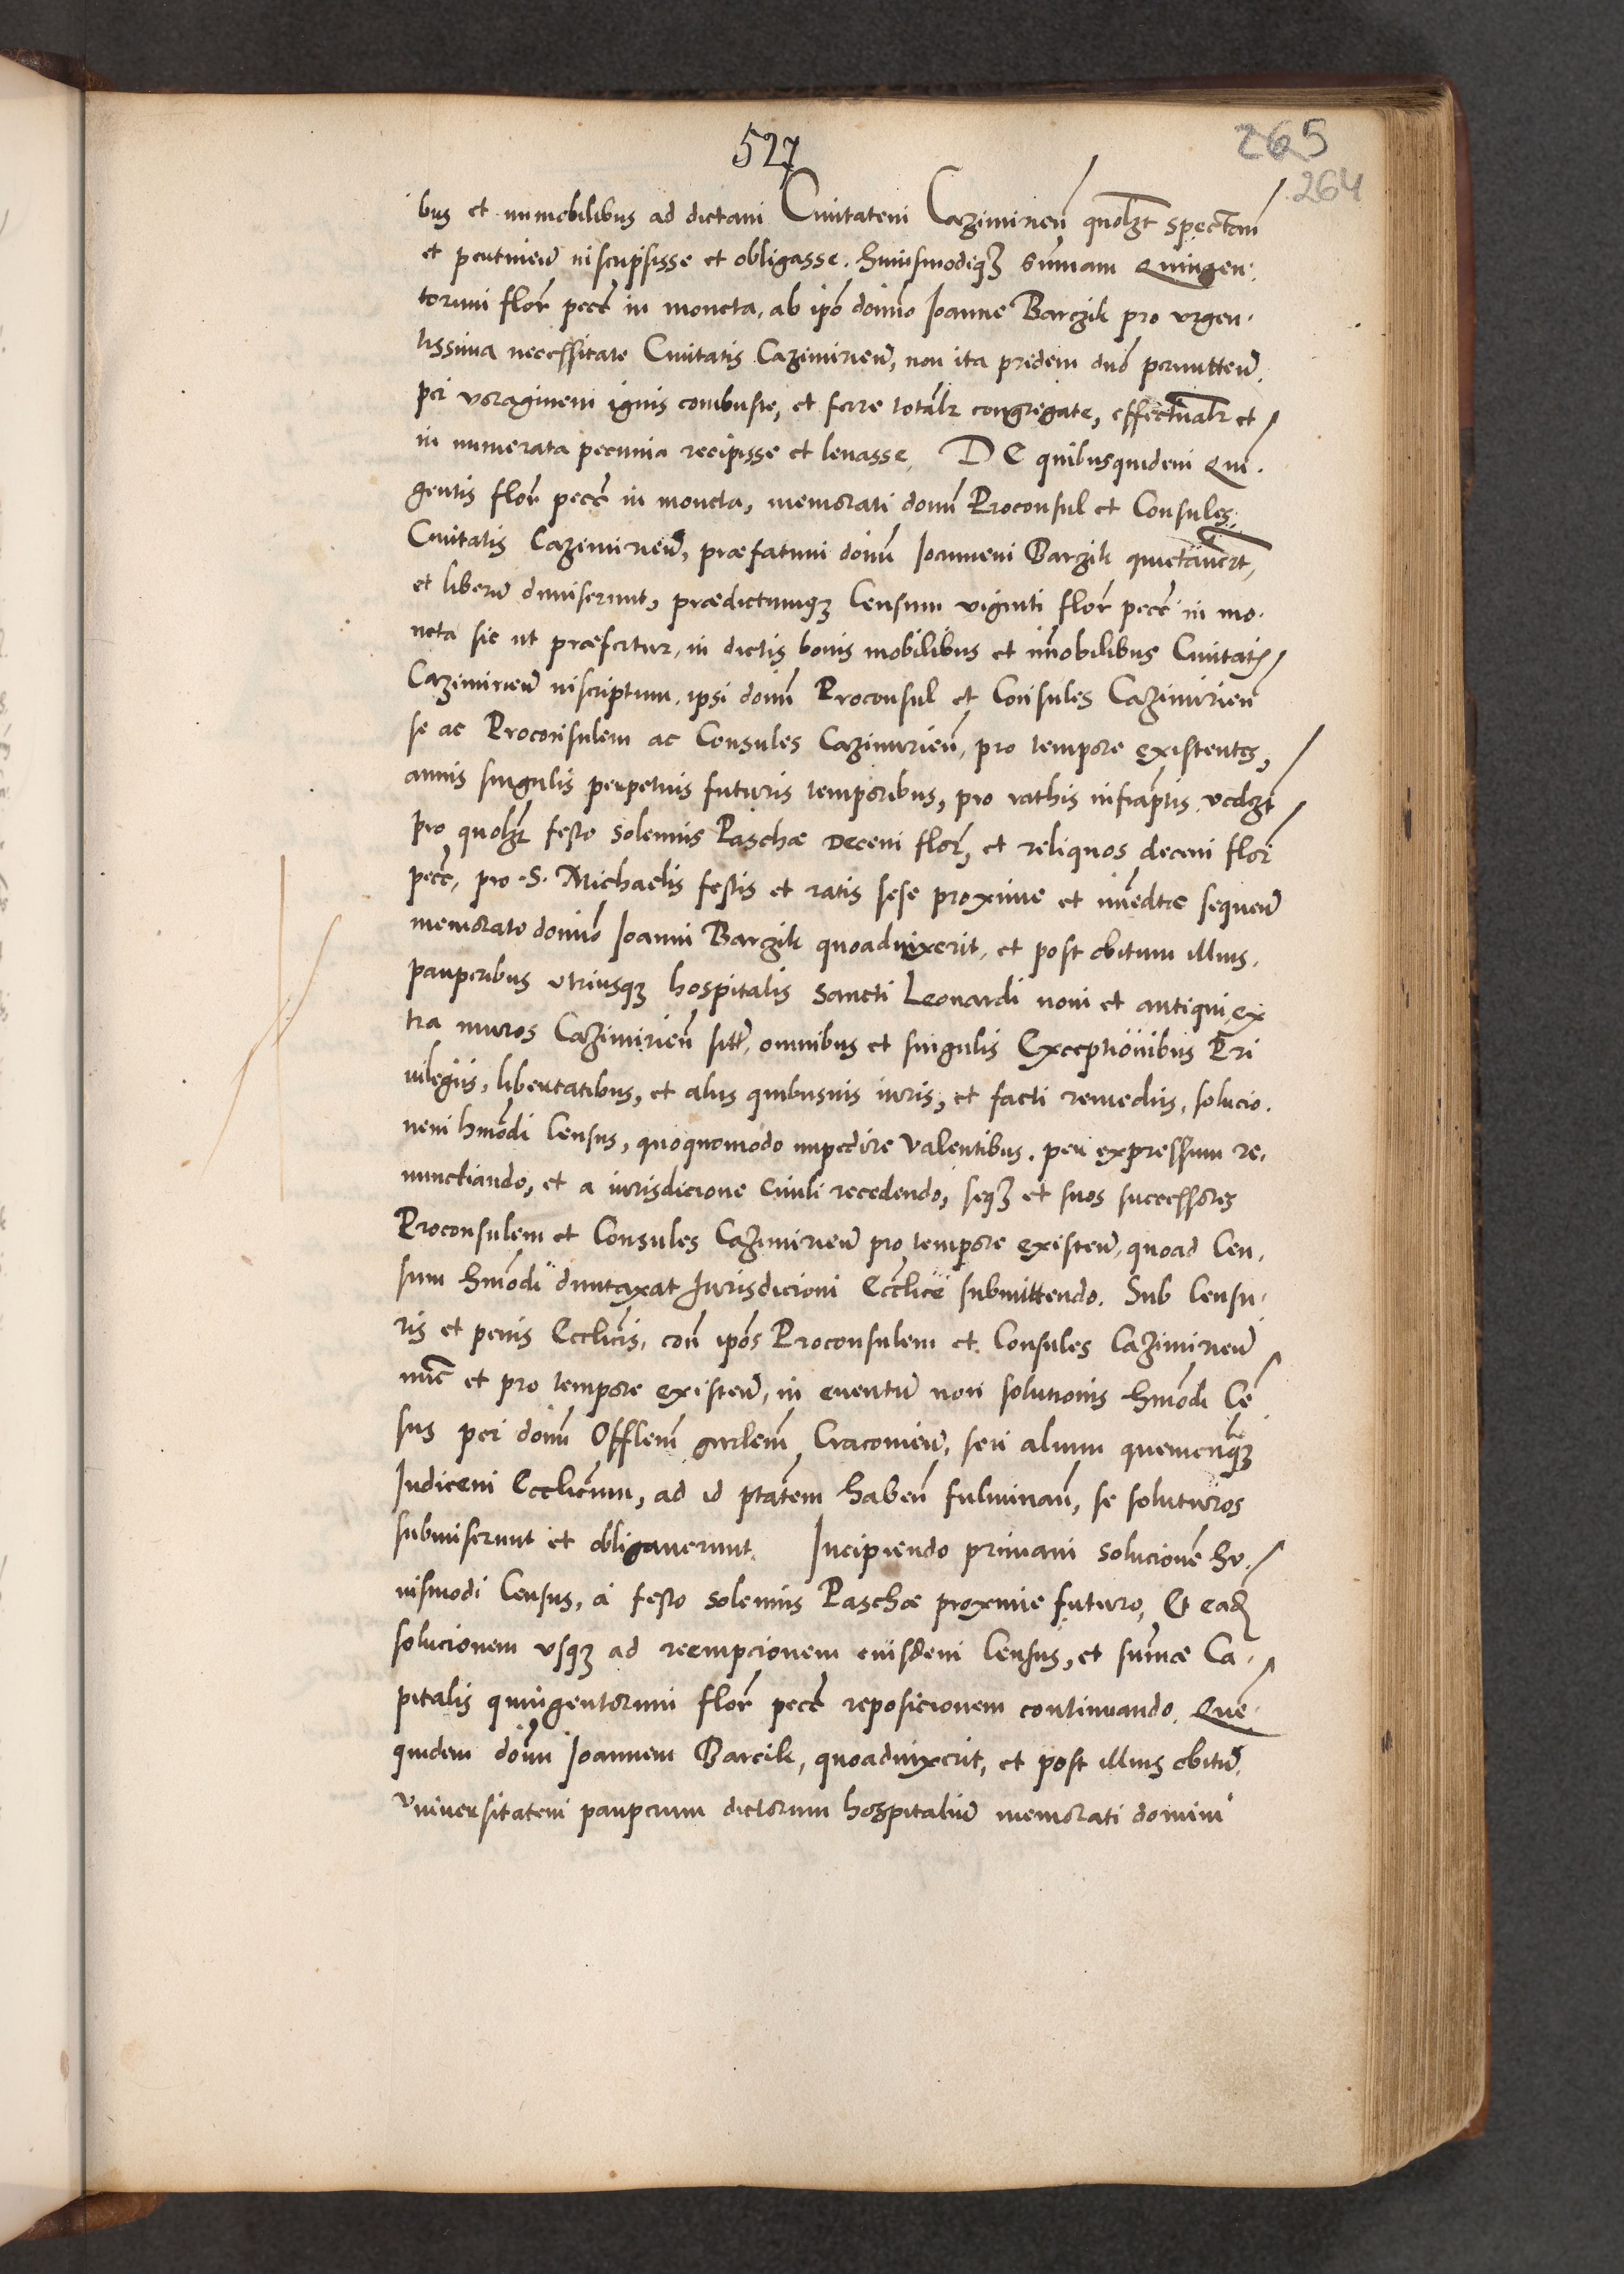 527
265
264
bus et immobilibus ad dictam Civitatem Cazimirien̄ quolzt spectan̄
et pertinen̄ inscripsisse et obligasse. Huiusmodiqz sum̄am Quingen-
torum flor̄ pecc̄ in moneta, ab ip̄o domīno Joanne Barczik pro urgen-
tissima necessitate Civitatis Cazimirien̄, non ita pridem dn̄o permitten̄
per voraginem ignis combuste, et ferre totalr̄ congregate, effectualr̄ et
in numerata pecunia recipisse et levasse. DE quibusquidem Quin-
gentis flor̄ pecc̄ in moneta, memorati domn̄ Proconsul et Consules
Civitatis Cazimirien̄, præfatum domn̄ Joannem Barczik quietaver̄t,
et liberū dimiserunt, prædictumqz Censum viginti flor̄ pecc̄ in mo-
neta sic ut præfertur, in dictis bonis mobilibus et im̄obilibus Civitatis
Cazimirien̄ inscriptum, ipsi domn̄ Proconsul et Consules Cazimirien̄
se ac Proconsulem ac Consules Cazimirien̄, pro tempore existentes,
annis singulis perpetuis futuris temporibus, pro rathis infrap̄tis vcdzt
pro quolzt festo solemnis Paschæ Decem flor̄, et reliquos decem flor̄
pecc̄, pro S. Michaelis festis et ratis sese proxime et im̄ed̄te sequen̄
memorato domīno Joanni Barczik quoadvixerit, et post obitum illius
pauperibus utriusqz hospitalis Sancti Leonardi novi et antiqui, ex
tra muros Cazimirien̄ sitt̄, omnibus et singulis Exceptionibus Pri
vilegiis, libertatibus, et aliis quibusvis iuris, et facti remediis, solucio-
nem hmōdi Census, quoquomodo impedire valentibus, per expressum re-
nunctiando, et a iurisdicione civili recedendo, seqz et suos successores
Proconsulem et Consules Cazimirien̄ pro tempore existen̄, quoad Cen-
sum hmōdi duntaxat Jurisdicioni Eccl̄ice submittendo. Sub Censu-
ris et penis Eccl̄icis, con̄ ipōs Proconsulem et Consules Cazimirien̄
nūc et pro tempore existen̄, in eventū non solutionis hmōdi Cē
sus per domn̄ Offlem̄ gn̄rlem̄ Cracovien̄, seu alium quemcunqz
Judicem Eccl̄icum, ad id p̄tatem haben̄ fulminan̄, se soluturos
submiserunt et obligaverunt. Incipiendo primam solucionē hu-
iusmodi Census, a festo solemnis Paschæ proxime futuro, Et eād
solucionem usqz ad reempcionem eiusdem Census, et sum̄æ Ca-
pitalis quingentorum flor̄ pecc̄ reposicionem continuando. Quē-
quidem domn̄ Joannem Barcik, quoadvixerit, et post illius obitū
universitatem pauperum dictorum hospitaliū memorati domini